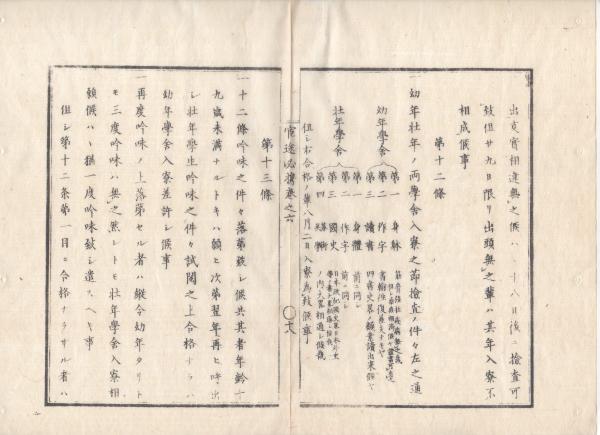 出支實相違無之候ハヽ十八日後ニ檢査可
致但廿九日限リ出頭無之輩ハ其年入寮不
相成候事
第十二條
幼年壮年ノ両學舎入寮之節檢査ノ件々左之通
幼年學舎
第一 身躰
第二 作字
第三 讀書
壮年學舎
第一 身體 前ニ同シ
第二 作字 前ニ同シ
第三 國史
第四 算術
但シ右合格ノ輩八月二日入寮為致候事
第十三條
一十二條吟味之件々落第致シ候共其者年齢十
九歳未満ナルトキハ願ニ次第翌年再ヒ呼出
シ壮年學生吟味之件々試閲之上合格ナラハ
幼年學舎入寮差許シ候事
一再度吟味ノ上落第セル者ハ縦令幼年タリト
モ三度吟味ハ無之然レトモ壮年學舎入寮相
願候ハヽ猶一度吟味致シ遣スヘキ事
但シ第十二条第一目ニ合格ナラサル者ハ